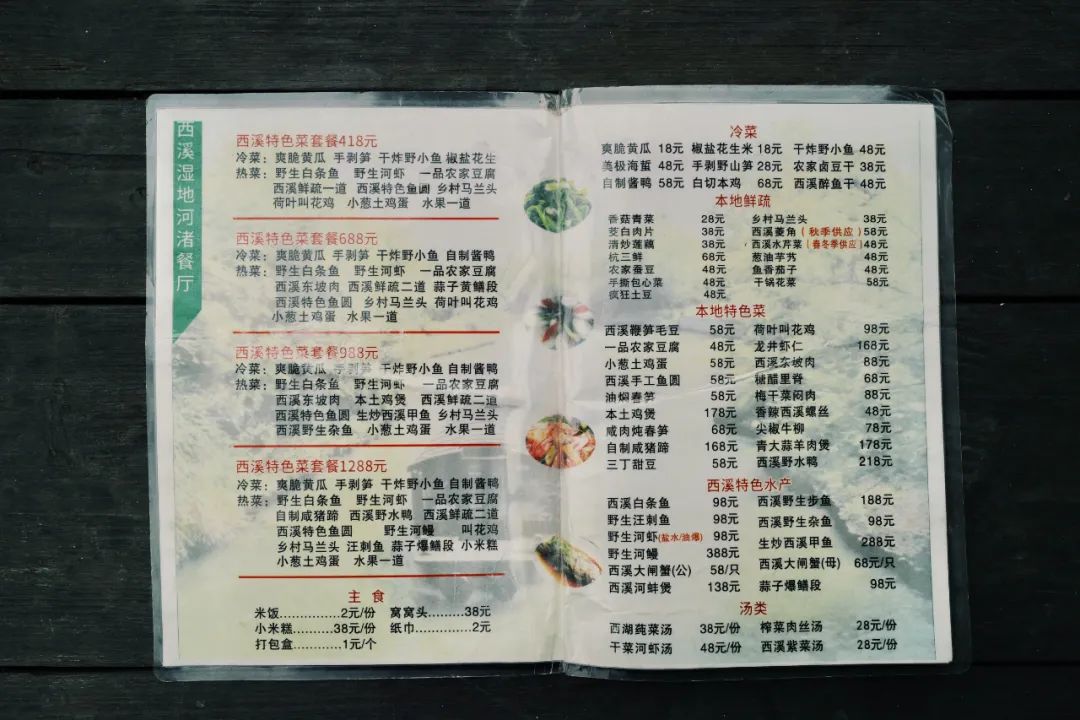 西溪湿地河渚餐厅
西溪特色菜套餐418元
冷菜：爽脆黄瓜 手剥笋 干炸野小鱼 椒盐花生
热菜：野生白条鱼 野生河虾 一品农家豆腐
西溪鲜疏一道 西溪特色鱼圆 乡村马兰头
荷叶叫花鸡 小葱土鸡蛋 水果一道
西溪特色菜套餐688元
冷菜：爽脆黄瓜 手剥笋 干炸野小鱼 自制酱鸭
热菜：野生白条鱼 野生河虾 一品农家豆腐
西溪东坡肉 西溪鲜疏二道 蒜子黄鳝段
西溪特色鱼圆 乡村马兰头 荷叶叫花鸡
小葱土鸡蛋 水果一道
西溪特色菜套餐988元
冷菜：爽脆黄瓜 手剥笋 干炸野小鱼 自制酱鸭
热菜：野生白条鱼 野生河虾 一品农家豆腐
西溪东坡肉 本土鸡煲 西溪鲜疏二道
西溪特色鱼圆 生炒西溪甲鱼 乡村马兰头
西溪野生杂鱼 小葱土鸡蛋 水果一道
西溪特色菜套餐1288元
冷菜：爽脆黄瓜 手剥笋 干炸野小鱼 自制酱鸭
热菜：野生白条鱼 野生河虾 一品农家豆腐
自制咸猪蹄 西溪野水鸭 西溪鲜疏二道
西溪特色鱼圆 野生河鳗 叫花鸡
乡村马兰头 汪刺鱼 蒜子爆鳝段 小米糕
小葱土鸡蛋 水果一道
主 食
米饭...............2元/份 窝窝头.........38元
小米糕..........38元/份 纸巾..............2元
打包盒............1元/个
冷菜
爽脆黄瓜 18元 椒盐花生米 18元 干炸野小鱼 48元
美极海蜇 48元 手剥野山笋 28元 农家卤豆干 38元
自制酱鸭 58元 白切本鸡 68元 西溪醉鱼干 48元
本地鲜疏
香菇青菜 28元 乡村马兰头 38元
茭白肉片 38元 西溪菱角（秋季供应）58元
清炒莲藕 38元 西溪水芹菜（春冬季供应）48元
杭三鲜 68元 葱油芋艿 48元
农家蚕豆 48元 鱼香茄子 48元
手撕包心菜 48元 干锅花菜 58元
疯狂土豆 48元
本地特色菜
西溪鞭笋毛豆 58元 荷叶叫花鸡 98元
一品农家豆腐 48元 龙井虾仁 168元
小葱土鸡蛋 58元 西溪东坡肉 88元
西溪手工鱼圆 58元 糖醋里脊 68元
油焖春笋 58元 梅干菜焖肉 88元
本土鸡煲 178元 香辣西溪螺丝 48元
咸肉炖春笋 68元 尖椒牛柳 78元
自制咸猪蹄 168元 青大蒜羊肉煲 178元
三丁甜豆 58元 西溪野水鸭 218元
西溪特色水产
西溪白条鱼 98元 西溪野生步鱼 188元
野生汪刺鱼 98元 西溪野生杂鱼 98元
野生河虾(盐水/油爆) 98元 生炒西溪甲鱼 288元
野生河鳗 388元
西溪大闸蟹(公) 58/只 西溪大闸蟹(母) 68元/只
西溪河蚌煲 138元 蒜子爆鳝段 98元
汤类
西湖莼菜汤 38元/份 榨菜肉丝汤 28元/份
干菜河虾汤 48元/份 西溪紫菜汤 28元/份